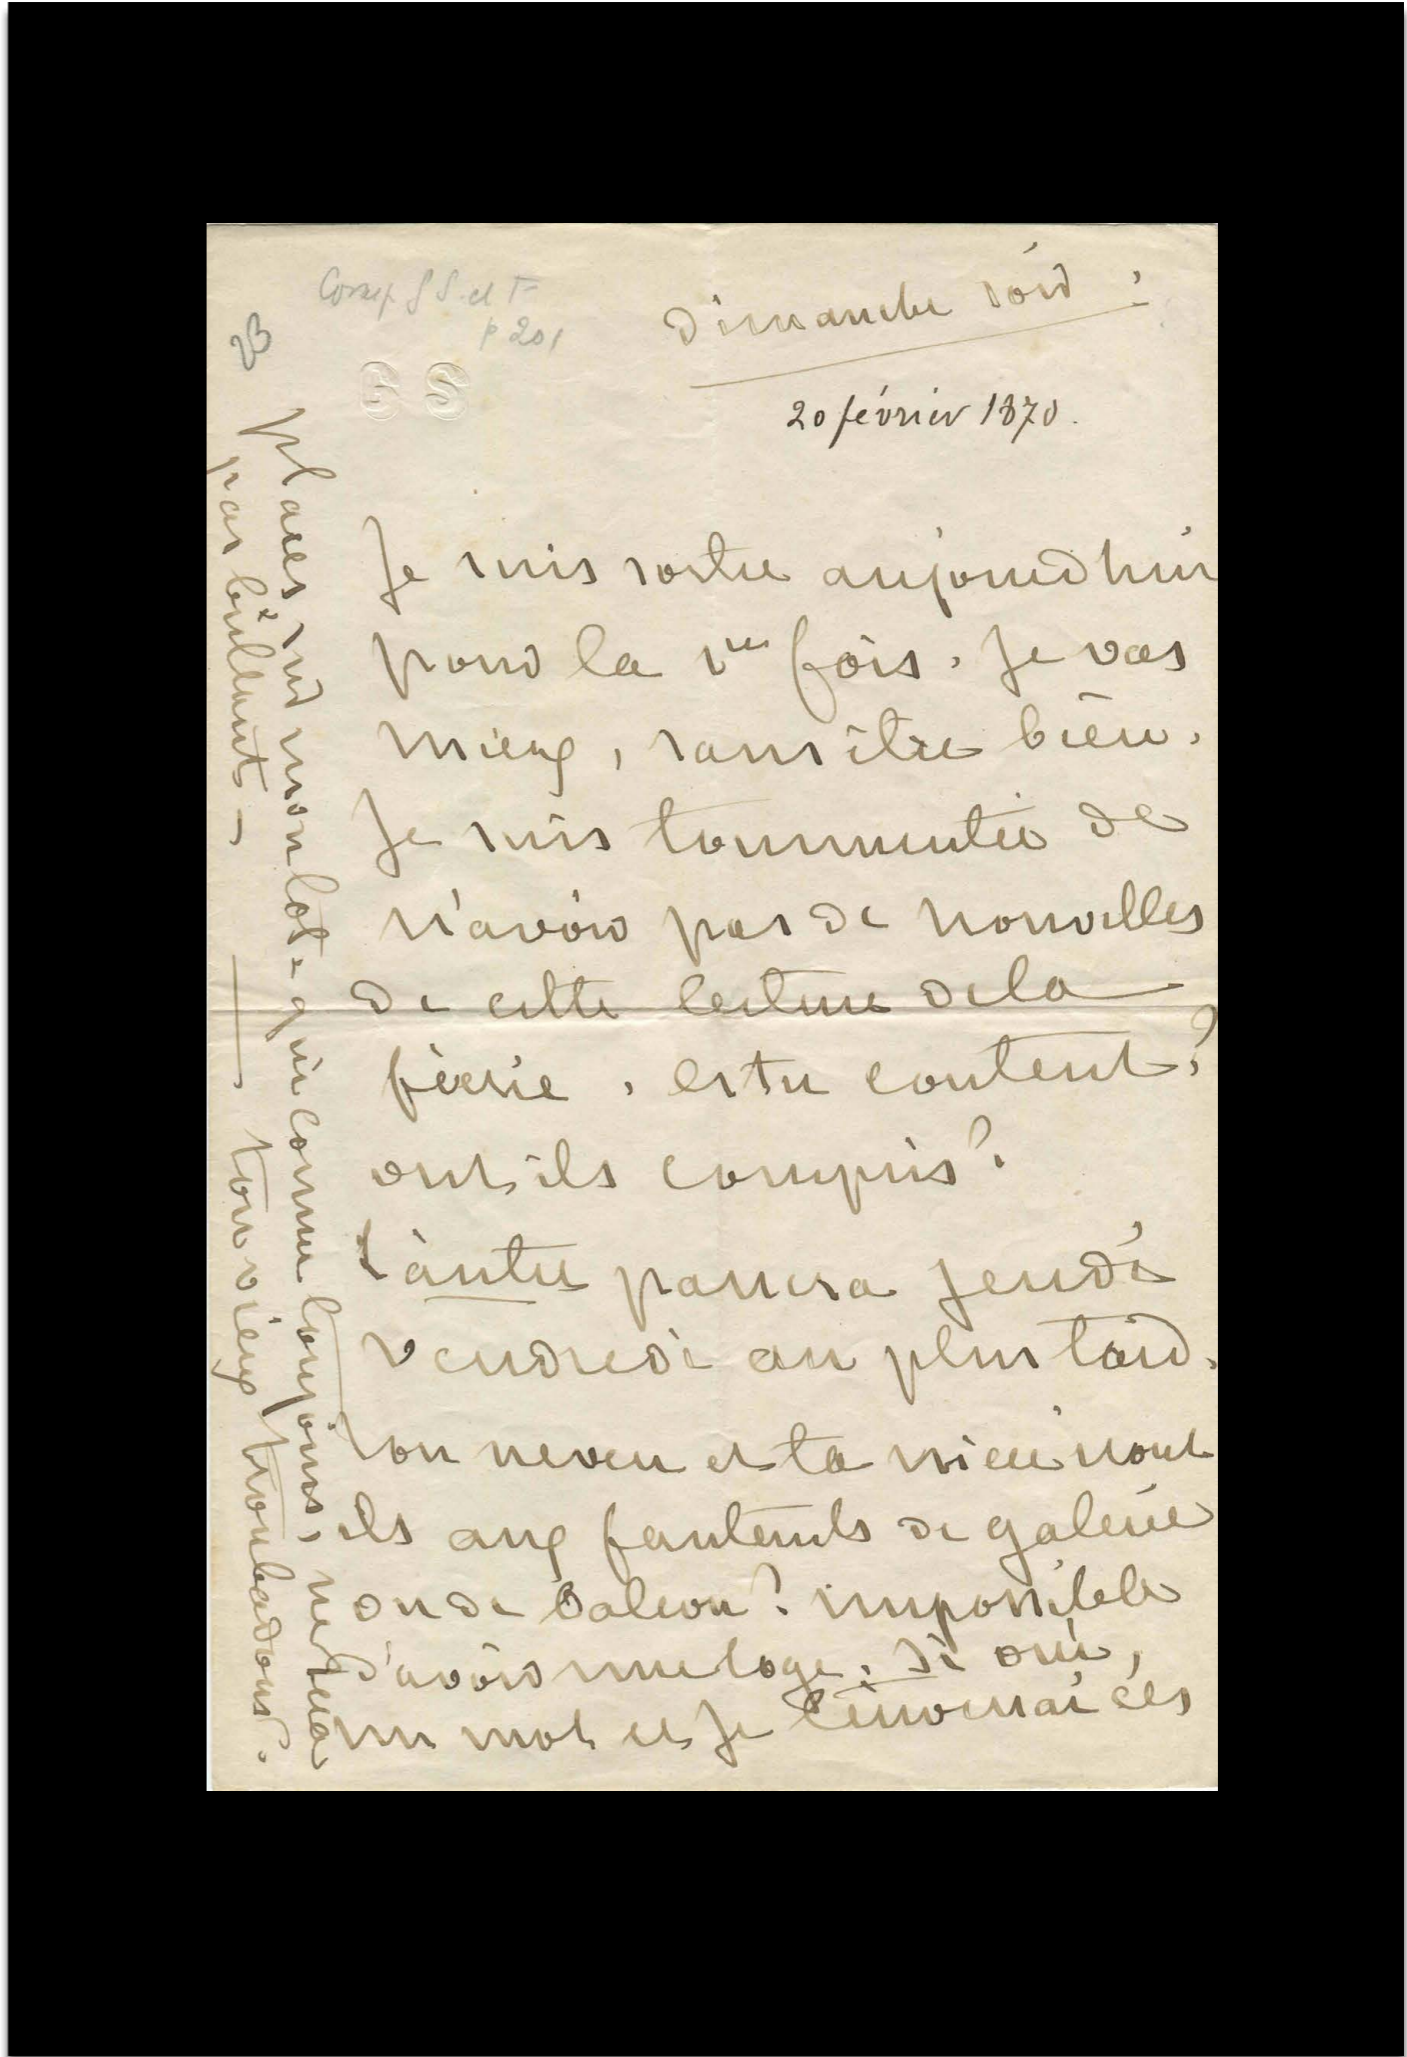 Corresp. G S. et F
p 201
23
G S
Dimanche soir :
20 février 1870.
Je suis sortie aujourd'hui
pour la 1re fois. Je vas
mieux, sans être bien.
Je suis tourmentée de
n'avoir pas de nouvelles
de cette lecture de la
féerie. es tu content?
ont ils compris?
L'autre passera jeudi
vendredi au plus tard.
ton neveu et ta nièce iront
ils aux fauteuils de galerie
ou de balcon? impossible
d'avoir une loge. Si oui,
un mot et je t'enverrai ces
places sur mon lot - qui comme toujours, ne sera
pas brillant -
ton vieux troubadour.